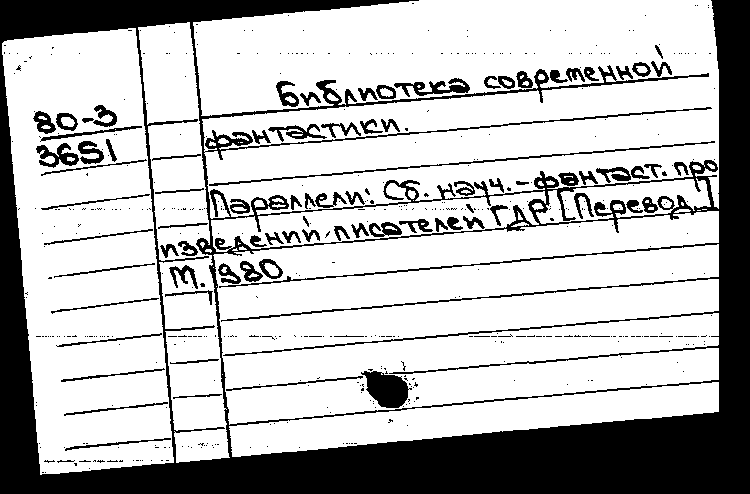 80-3
3651
Библиотека современной
фантастики.
Параллели: Сб. науч.-фантаст. про
изведений писателей ГДР. [Перевод.]
М. 1980.